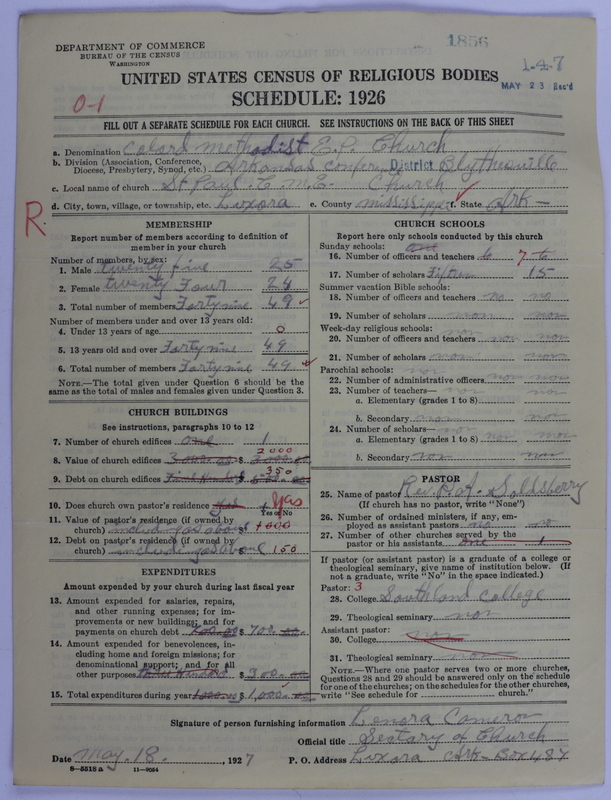 DEPARTMENT OF COMMERCE
BUREAU OF THE CENSUS
WASHINGTON
1856
1-4-7
MAY 23 Rec'd
UNITED STATES CENSUS OF RELIGIOUS BODIES
SCHEDULE: 1926
0-1
FILL OUT A SEPARATE SCHEDULE FOR EACH CHURCH. SEE INSTRUCTIONS ON THE BACK OF THIS SHEET
a. Denomination Colard Methodist E.P. Church
b. Division (Association, Conference, Diocese, Presbytery, Synod, etc.) Arkansas Conference District Blytheville
c. Local name of church St Paul C.M.E. Church
d. City, town, village, or township, etc. Luxora e. County Mississippi f. State Ark-
R
MEMBERSHIP
Report number of members according to definition of
member in your church
Number of members, by sex:
1. Male twenty five 25
2. Female twenty Four 24
3. Total number of members Forty nine 49
Number of members under 13 years old:
4. Under 13 years of age 0
5. 13 years old and over Forty nine 49
6. Total number of members Forty nine 49
NOTE.—The total given under Question 6 should be
same as the total of males and females given under Question 3.
CHURCH BUILDINGS
See instructions, paragraphs 10 to 12
7. Number of church edifices one 1
2000
8. Value of church edifices $
350
9. Debt on church edifices
10. Does church own pastor's residence? Yas
Yes or No
11. Value of pastor's residence (if owned by
church) $ 1000
12. Debt on pastor's residence (if owned by
church) 150
EXPENDITURES
Amount expended by your church during last fiscal year
13. Amount expended for salaries, repairs,
and other running expenses; for im-
provements or new buildings; and for
payments on church debt $ 700.00
14. Amount expended for benevolences, in-
cluding home and foreign missions; for
denominational support; and for all
other purposes Three Hundred $ 300.00
15. Total expenditures during year 1000.00 $ 1,000.00
CHURCH SCHOOLS
Report here only schools conducted by this church
Sunday schools:
16. Number of officers and teachers 7
17. Number of scholars Fifteen 15
Summer vacation Bible schools:
18. Number of officers and teachers no no
19. Number of scholars non non
Week-day religious schools: non
20. Number of officers and teachers non non
21. Number of scholars non non
Parochial schools: non
22. Number of administrative officers non non
23. Number of teachers— non non
a. Elementary (grades 1 to 8)
b. Secondary non non
24. Number of scholars— non
a. Elementary (grades 1 to 8) non non
b. Secondary non non
PASTOR
25. Name of pastor Rev. Goldsberry
(If church has no pastor, write "None")
26. Number of ordained ministers, if any, em-
ployed as assistant pastors no no
27. Number of other churches served by the
pastor or his assistants one 1
If pastor (or assistant pastor) is a graduate of a college or
theological seminary, give name of institution below. (If
not a graduate, write "No" in the space indicated.)
Pastor: 3
28. College Southland College
29. Theological seminary non
Assistant pastor:
30. College non
31. Theological seminary non
NOTE.—Where one pastor serves two or more churches,
Questions 28 and 29 should be answered only on the schedule
for one of the churches; on the schedules for the other churches,
write "See schedule for church."
Signature of person furnishing information Lenora Cameron
Official title Secetary of Church
Date May. 18. , 1927 P. O. Address Luxora Ark- Box 487
8-5518 a 11-9054